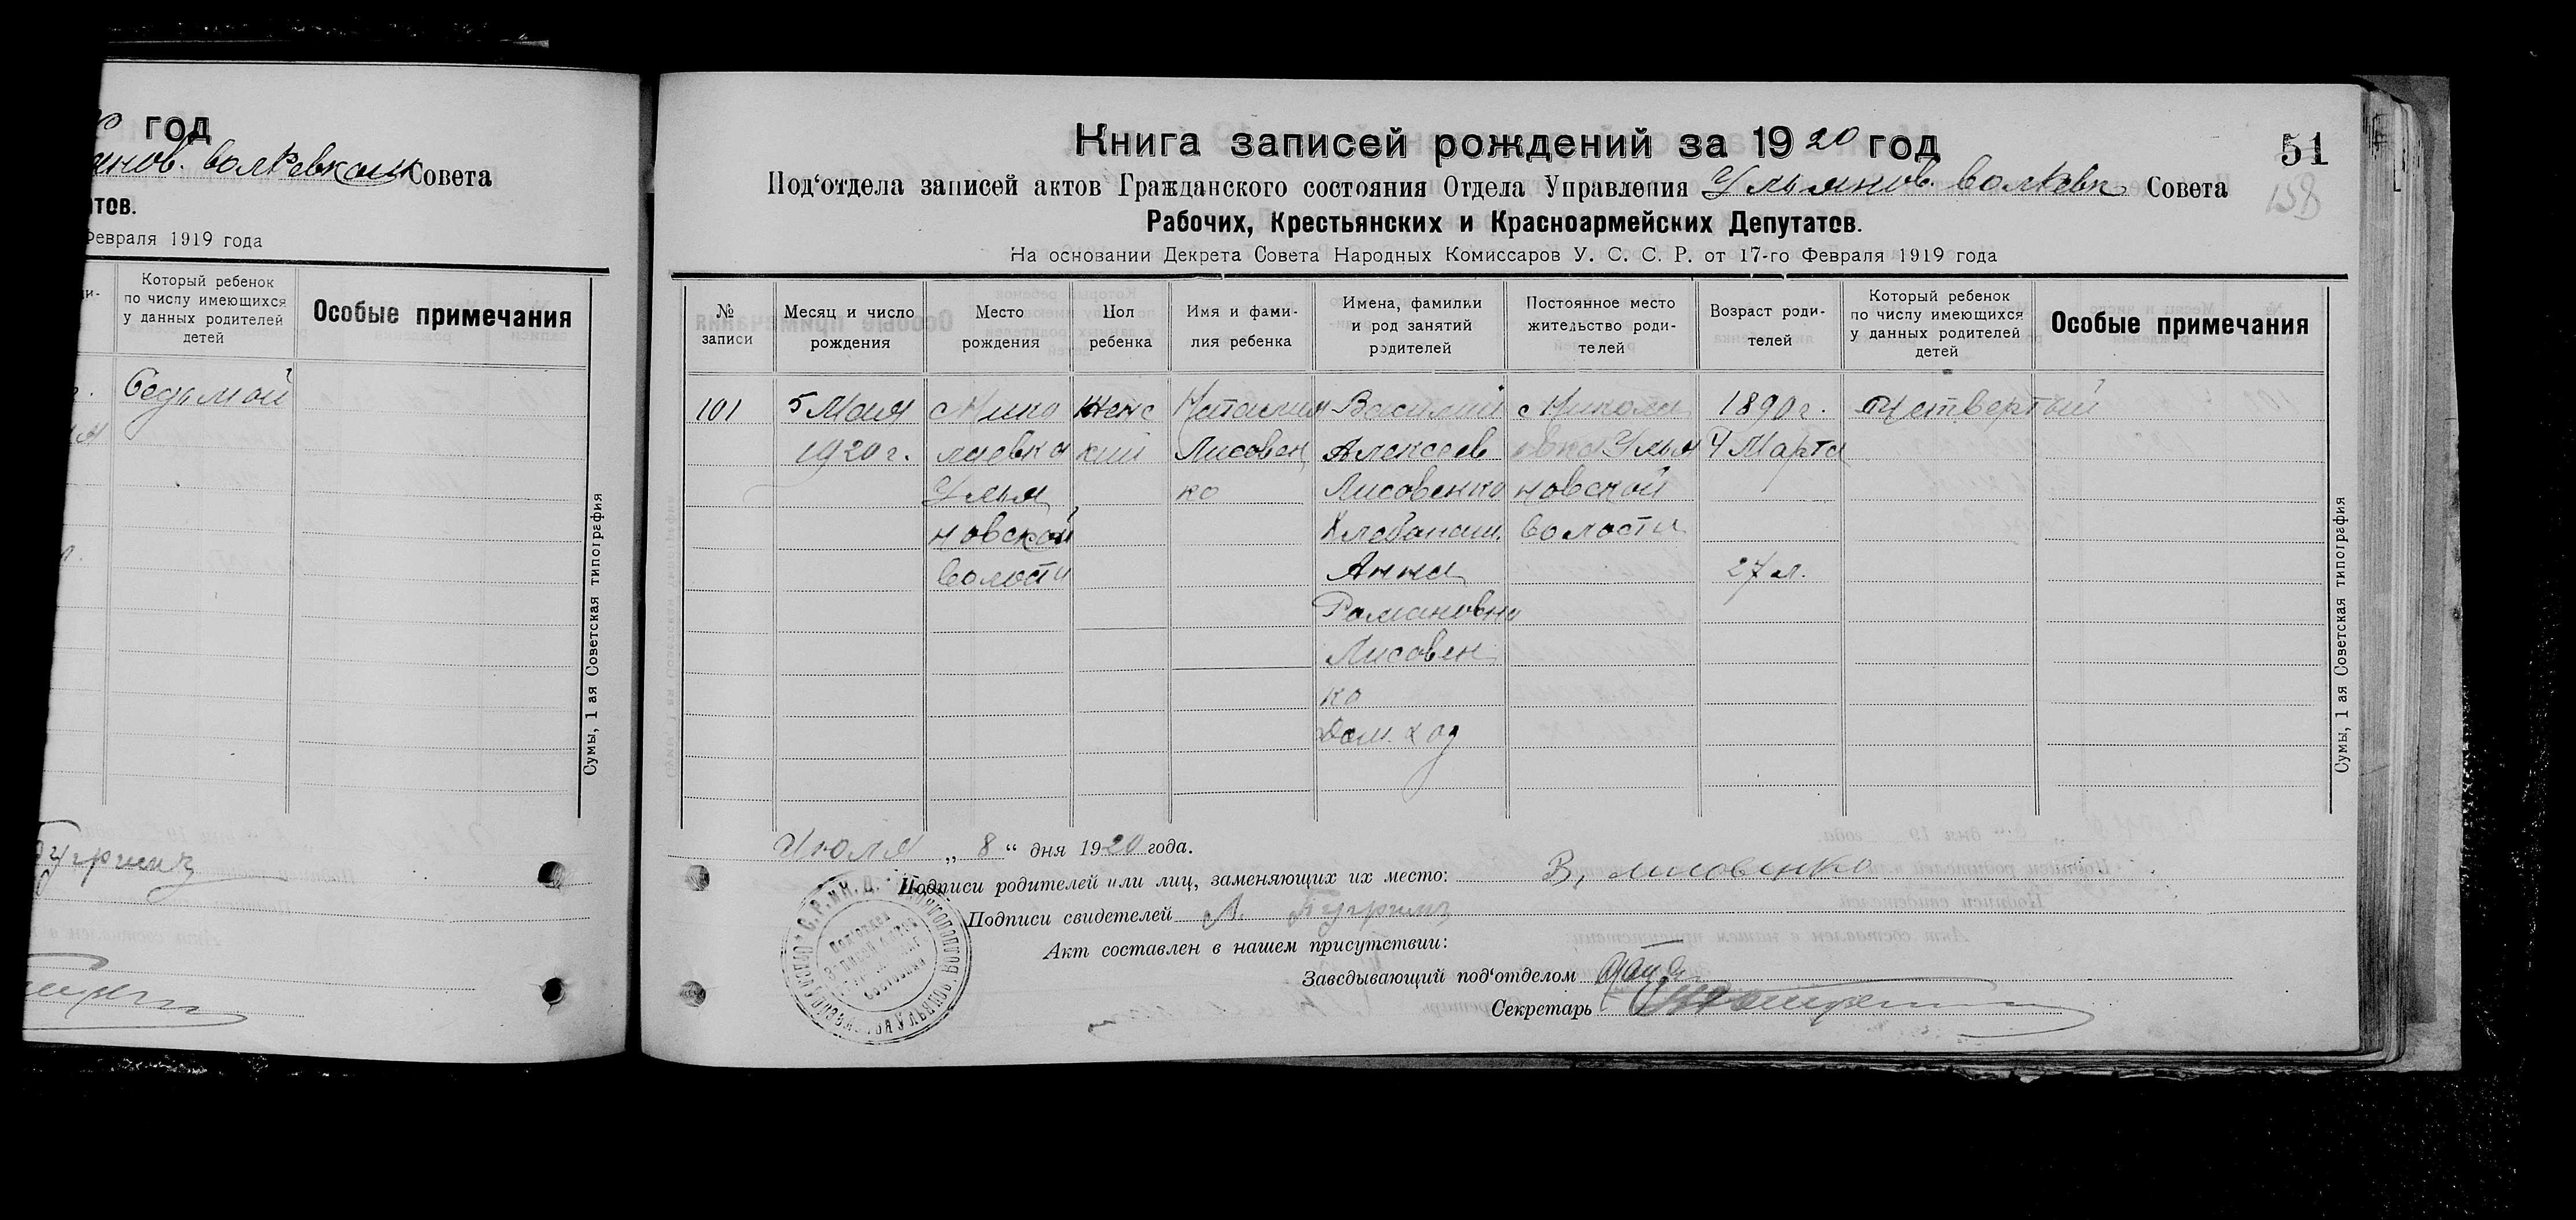 год
волРевком Совета
тов.
Февраля 1919 года
Который ребенок
по числу имеющихся
у данных родителей
детей
Особые примечания
Седьмой
Сумы, 1 ая Советская типография
Книга записей рождений за 1920 год
51
Под‘отдела записей актов Гражданского состояния Отдела Управления Ульянов. волРевк Совета
158
Рабочих, Крестьянских и Красноармейских Депутатов.
На основании Декрета Совета Народных Комиссаров У. С. С. Р. от 17-го Февраля 1919 года
№
записи
Месяц и число
рождения
Место
рождения
Пол
ребенка
Имя и фами-
лия ребенка
Имена, фамилии
и род занятий
родителей
Постоянное место
жительство роди-
телей
Возраст роди-
телей
Который ребенок
по числу имеющихся
у данных родителей
детей
Особые примечания
101
5 Мая
1920 г.
с Нико
лаевка
Улья
новской
волости
Женс
кий
Наталия
Лисовен
ко
Василий
Алексеев
Лисовенко
Хлебопаш.
Анна
Романовна
Лисовен
ко
Дом. хоз
с Никола
евка Улья
новской
волости
1890 г.
4 Марта
27 л.
Четвертый
Июля „ 8 “ дня 1920 года.
Подписи родителей или лиц, заменяющих их место: В, лисовенко
Подписи свидетелей
Акт составлен в нашем присутствии:
Заведывающий под‘отделом
Секретарь
Сумы, 1 ая Советская типография